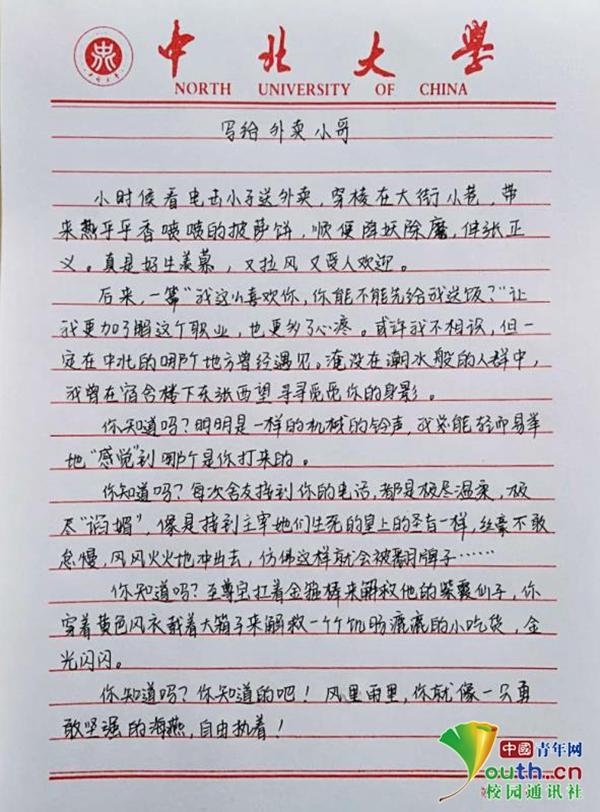 中北大学
NORTH UNIVERSITY OF CHINA
写给外卖小哥
小时候看虫击小子送外卖,穿梭在大街小巷,带
来热乎乎香喷喷的披萨饼,顺便降妖除魔,伸张正
义。真是好生羡慕,又拉风又受人欢迎。
后来,一篇“我这么喜欢你,你能不能先给我送饭?”让
我更加了解这个职业,也更多了心疼。或许我不相识,但一
定在中北的哪个地方曾经遇见。淹没在潮水般的人群中,
我曾在宿舍楼下东张西望寻寻觅觅你的身影。
你知道吗?明明是一样的机械的铃声,我总能轻而易举
地“感觉”到哪个是你打来的。
你知道吗?每次舍友接到你的电话,都是极尽温柔,极
尽“谄媚”,像是接到主宰她们生死的皇上的圣旨一样,丝毫不敢
怠慢,风风火火地冲出去,仿佛这样就会被翻牌子……
你知道吗?至尊宝扛着金箍棒来解救他的紫霞仙子,你
穿着黄色风衣载着大箱子来解救一个个饥肠漉漉的小吃货,金
光闪闪。
你知道吗?你知道的吧!风里雨里,你就像一只勇
敢坚强的海燕,自由执着!
中國青年网
youth.cn
校园通讯社